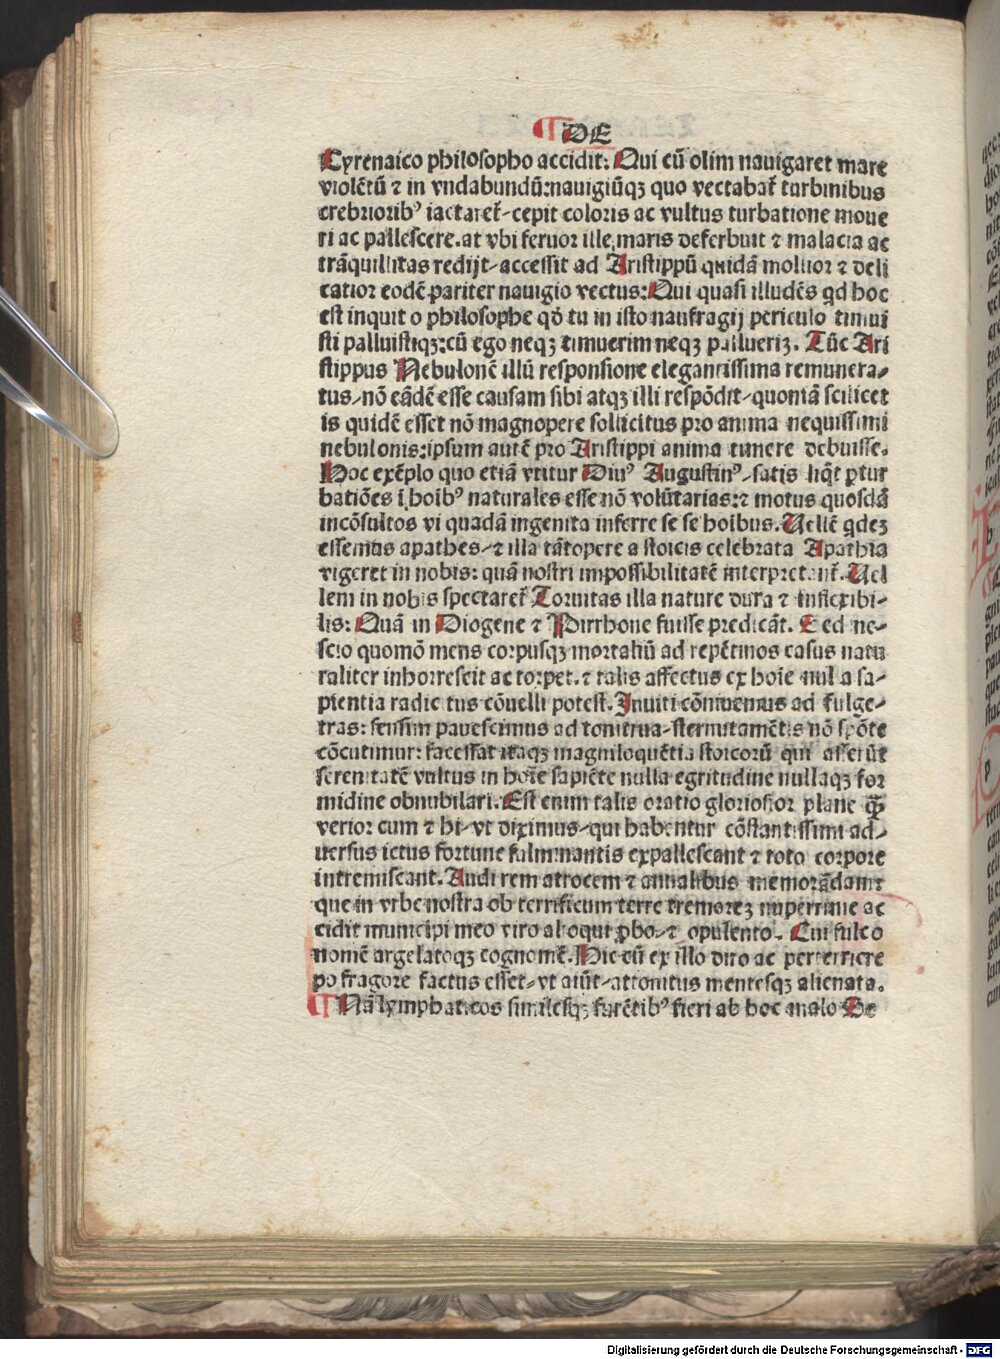 ¶ DE
Cyrenaico philosopho accidit: Qui cū olim nauigaret mare
violētū ⁊ in vndabundū: nauigiūqꝫ quo vectabat᷑ turbinibus
crebrioribꝰ iactaret᷑-cepit coloris ac vultus turbatione moue
ri ac pallescere. at vbi feruor ille maris deferbuit ⁊ malacia ac
trāquillitas redijt-accessit ad Aristippū quidā mollior ⁊ deli
catior eodē pariter nauigio vectus: Qui quasi illudēs qd hoc
est inquit o philosophe qȯ tu in isto naufragij periculo timui
sti palluistiqꝫ: cū ego neqꝫ timuerim neqꝫ palluerim. Tūc Ari
stippus Nebulonē illū responsione elegantissima remunera-
tus-nō eādē esse causam sibi atqꝫ illi respōdit-quoniā scilicet
is quidē esset nō magnopere sollicitus pro anima nequissimi
nebulonis: ipsum autē pro Aristippi anima timere debuisse.
Hoc exēplo quo etiā vtitur Diuꝰ Augustinꝰ-satis liqȝt ꝑtur
batiōes ī hoībꝰ naturales esse nō volūtarias: ⁊ motus quosdā
incōsultos vi quadā ingenita inferre se se hoibus. Uellē qdeꝫ
essemus apathes-⁊ illa tātopere a stoicis celebrata Apathia
vigeret in nobis: quā nostri impossibilitatē interpretant᷑. Uel
lem in nobis spectaret᷑ Toruitas illa nature dura ⁊ inflexibi-
lis: Quā in Diogene ⁊ Pirrhone fuisse predicāt. Sed ne-
scio quomō mens corpusqꝫ mortaliū ad repētinos casus natu
raliter inhorrescit ac torpet. ⁊ talis affectus ex hoīe nulla sa-
pientia radicitus cōuelli potest. Inuiti cōniuemus ad fulge-
tras: sensim pauescimus ad tonitrua-sternutamētis nō spōte
cōcutimur: facessat itaqꝫ magniloquētia stoicorū qui asserūt
serenitatē vultus in hoīe sapiēte nulla egritudine nullaqꝫ for
midine obnubilari. Est enim talis oratio gloriosior plane qꝫ̄
verior cum ⁊ hi-vt diximus-qui habentur cōstantissimi ad-
uersus ictus fortune fulminantis expallescant ⁊ toto corpore
intremiscant. Audi rem atrocem ⁊ annalibus memorādam:
que in vrbe nostra ob terrificum terre tremoreꝫ nuperrime ac
cidit municipi meo viro alioqui ꝓbo-⁊ opulento. Cui fulco
nomē argelatoqꝫ cognomē. Hic cū ex illo diro ac perterricre
po fragore factus esset-vt aiūt-attonitus mentesqꝫ alienata.
¶ Nā lymphaticos similesqꝫ furētibꝰ fieri ab hoc malo Se
Digitalisierung gefördert durch die Deutsche Forschungsgemeinschaft - DFG